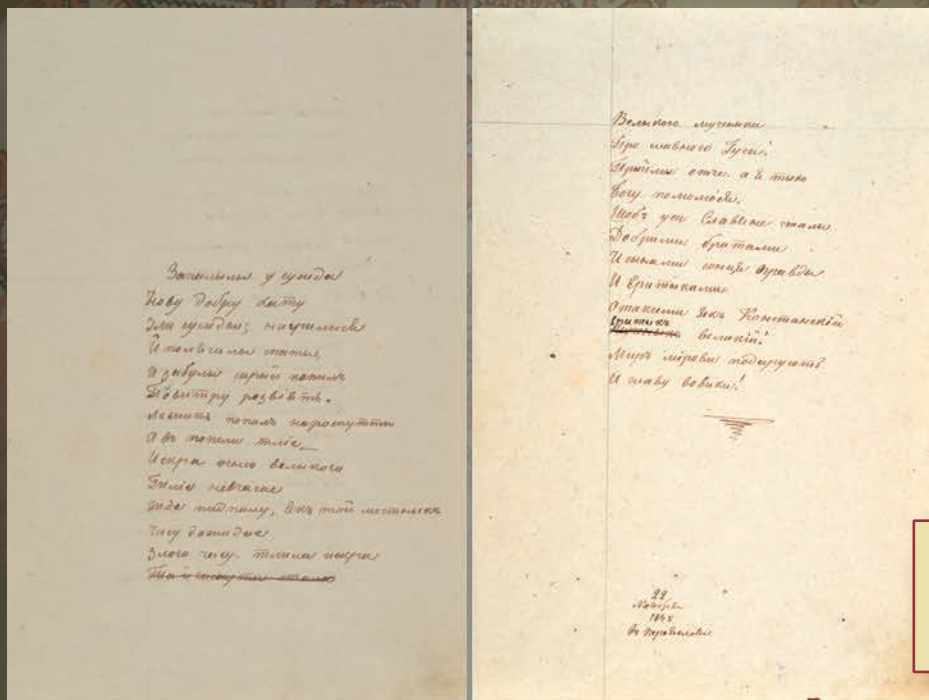 Запалылы у сусида
Нову добру хату
Зли сусиды; нагрилыся
Й полягалы спаты,
И забулы сирый попилъ
По витру розвіять.
Лежить попилъ на роспутти
А въ попели тліе
Искра огню великого
Тліе невгасае
Жде пидпалу, якъ той местныкъ
Часу дожидае
Злого часу. тлила искра
Та й гаснуты стала
Великого мученыка
Про славного Гуса!
Прыймы отче. а я тыхо
Богу помолюся.
Щобъ уси Славяне сталы
Добрыми братами
И сынами сонця правды
И Еретыками
Отакими якъ Констанскій
Еретыкъ
великій!
Миръ мірови подарують
И славу вовики!
22
Ноября
1845
въ Переяславли